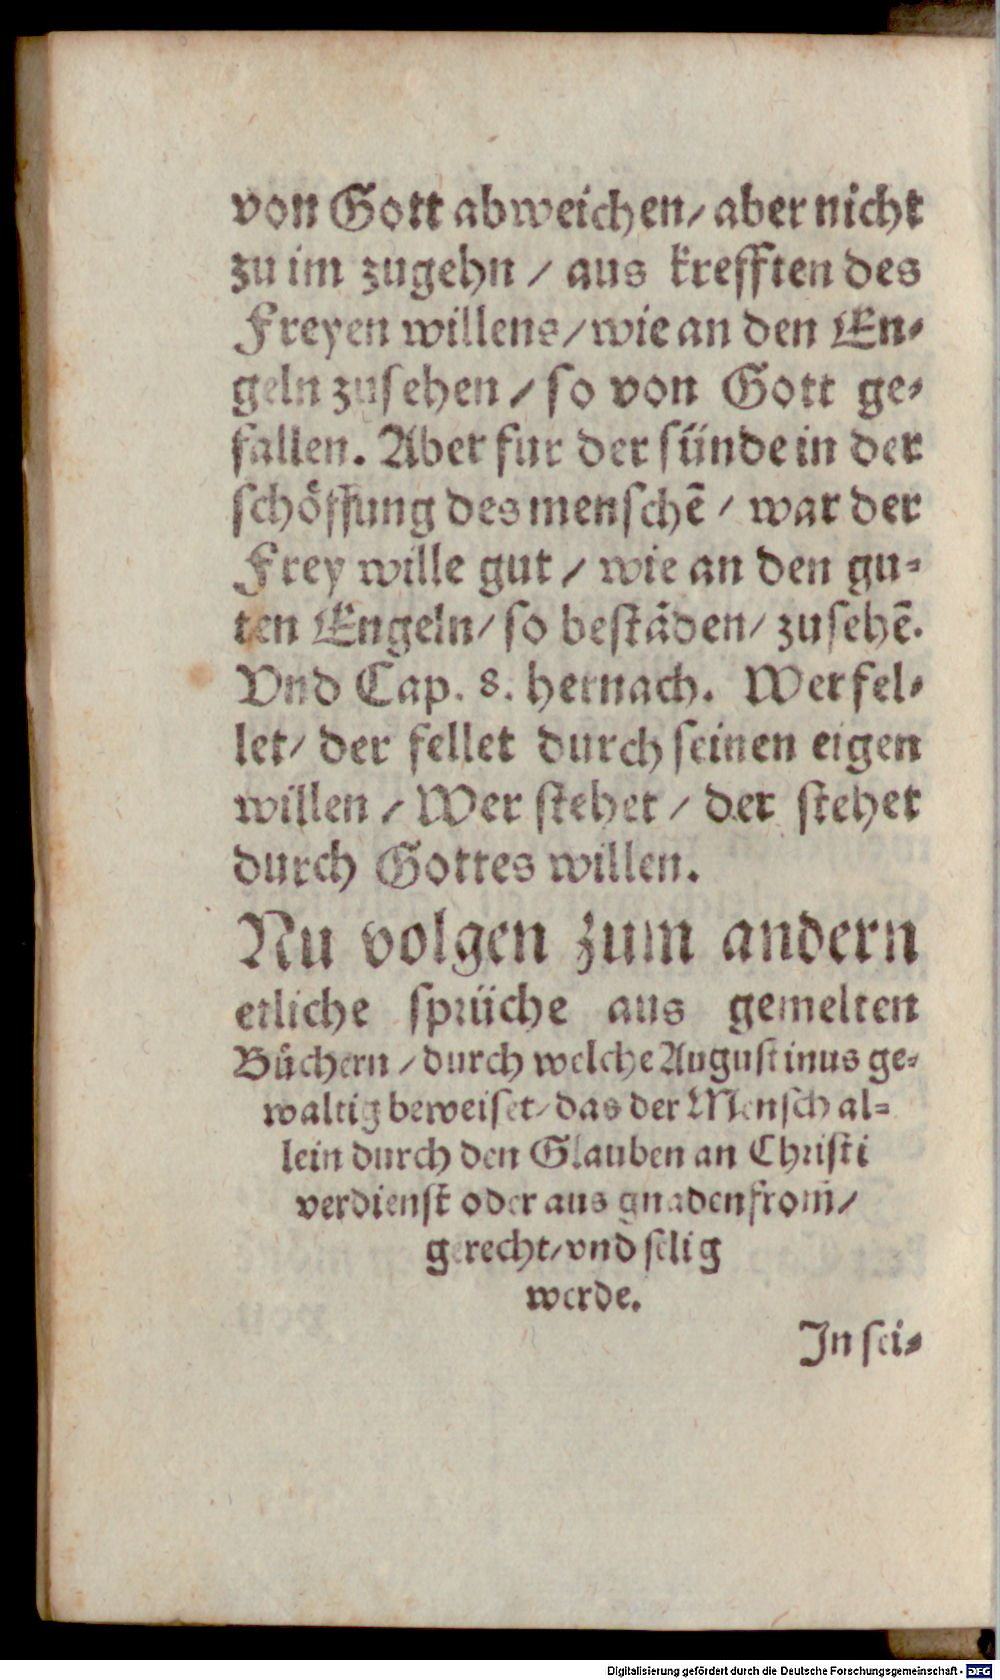 von Gott abweichen/ aber nicht
zu im zugehn / aus krefften des
Freyen willens/ wie an den En-
geln zusehen / so von Gott ge-
fallen. Aber fur der sünde in der
schöffung des menschē / war der
Frey wille gut / wie an den gu-
ten Engeln/ so bestāden/ zusehē.
Vnd Cap. 8. hernach. Wer fel-
let/ der fellet durch seinen eigen
willen / Wer stehet / der stehet
durch Gottes willen.
Nu volgen zum andern
etliche sprüche aus gemelten
Büchern / durch welche Augustinus ge-
waltig beweiset/ das der Mensch al-
lein durch den Glauben an Christi
verdienst oder aus gnaden from̄/
gerecht/ vnd selig
werde.
In sei-
Digitalisierung gefördert durch die Deutsche Forschungsgemeinschaft - DFG